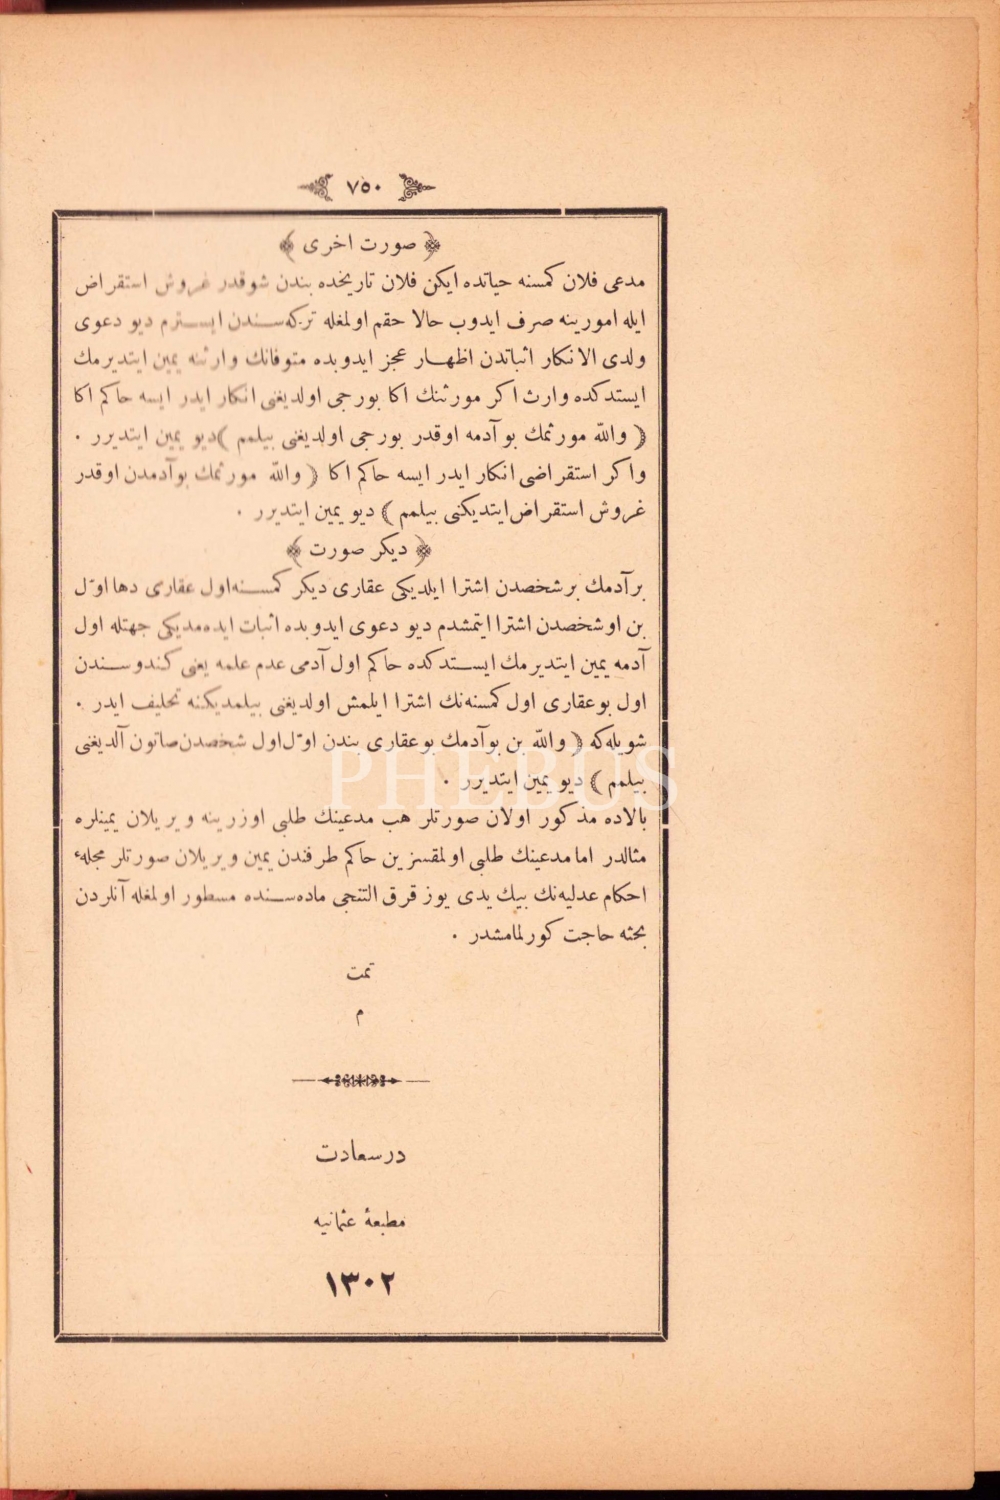 ٧٥٠
﴿ صورت اخرى ﴾
مدعى فلان كمسنه حياتده ايكن فلان تاريخده بندن شوقدر غروش استقراض
ايله امورينه صرف ايدوب حالا حقم اولمغله تركه‌سندن ايسترم ديو دعوى
ولدى الانكار اثباتدن اظهار عجز ايدوبده متوفانك وارثنه يمين ايتديرمك
ايستدكده وارث اكر مورثنك اكا بورجى اولديغنى انكار ايدر ايسه حاكم اكا
( والله مورثمك بو آدمه اوقدر بورجى اولديغنى بيلمم ) ديو يمين ايتديرر .
واكر استقراضى انكار ايدر ايسه حاكم اكا ( والله مورثمك بوآدمدن اوقدر
غروش استقراض ايتديكنى بيلمم ) ديو يمين ايتديرر .
﴿ ديكر صورت ﴾
برآدمك برشخصدن اشترا ايلديكى عقارى ديكر كمسنه اول عقارى دها اوّل
بن اوشخصدن اشترا ايتمشدم ديو دعوى ايدوبده اثبات ايده‌مديكى جهتله اول
آدمه يمين ايتديرمك ايستدكده حاكم اول آدمى عدم علمه يعنى كندوسندن
اول بوعقارى اول كمسنه‌نك اشترا ايلمش اولديغنى بيلمديكنه تحليف ايدر .
شويله‌كه ( والله بن بوآدمك بوعقارى بندن اوّل اول شخصدن صاتون آلديغنى
بيلمم ) ديو يمين ايتديرر .
بالاده مذكور اولان صورتلر هب مدعينك طلبى اوزرينه ويريلان يمينلره
مثالدر اما مدعينك طلبى اولمقسزين حاكم طرفندن يمين ويريلان صورتلر مجلهء
احكام عدليه‌نك بيك يدى يوز قرق التنجى ماده‌سنده مسطور اولمغله آنلردن
بحثه حاجت كورلمامشدر .
تمت
م
درسعادت
مطبعۀ عثمانيه
١٣٠٢
PHEBUS